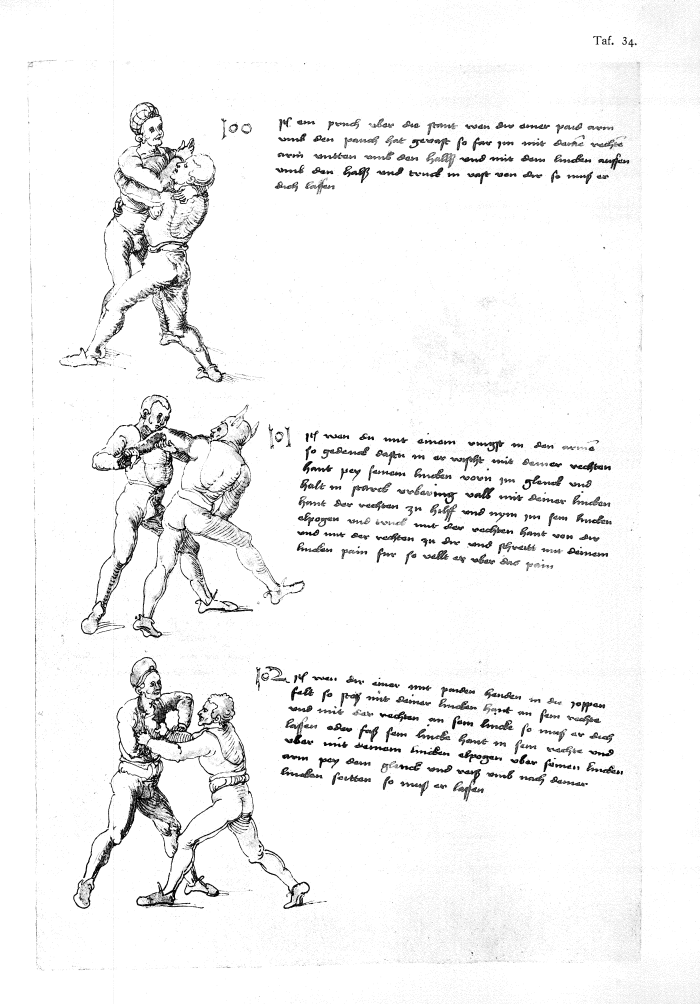 Taf. 34.
100
Jtꝫ ein pruch uber die stant wen dir einer paid arm
umb den pauch hat gevast so far im mit deine rechte
arm untten umb den halß und mit dem lincken aussen
umb den halß und truck in vast von dir so muß er
dich lassen
101
Jtꝫ wen du mit einem ringst in den arme
so gedenck dastu in er wischt mit deiner rechten
hant pey seinem lincken vorn im glenck und
halt in starck vall mit deiner lincken
hant der rechten zu hilff und nym im sein lincken
elpogen und truck mit der rechten hant von dir
und mit der rechten zu dir und schreitt mit deinem
lincken pain fur so vellt er uber das pain
102
Jtꝫ wen dir einer mit paiden henden in die joppen
felt so stoß mit deiner lincken hant an sein rechte
und mit der rechten an sein lincke so muß er dich
lassen oder faß sein lincke hant in sein rechte und
uber mit deinem lincken elpogen uber seinen lincken
arm pey dem glenck und reiß umb nach deiner
lincken seitten so muß er lassen